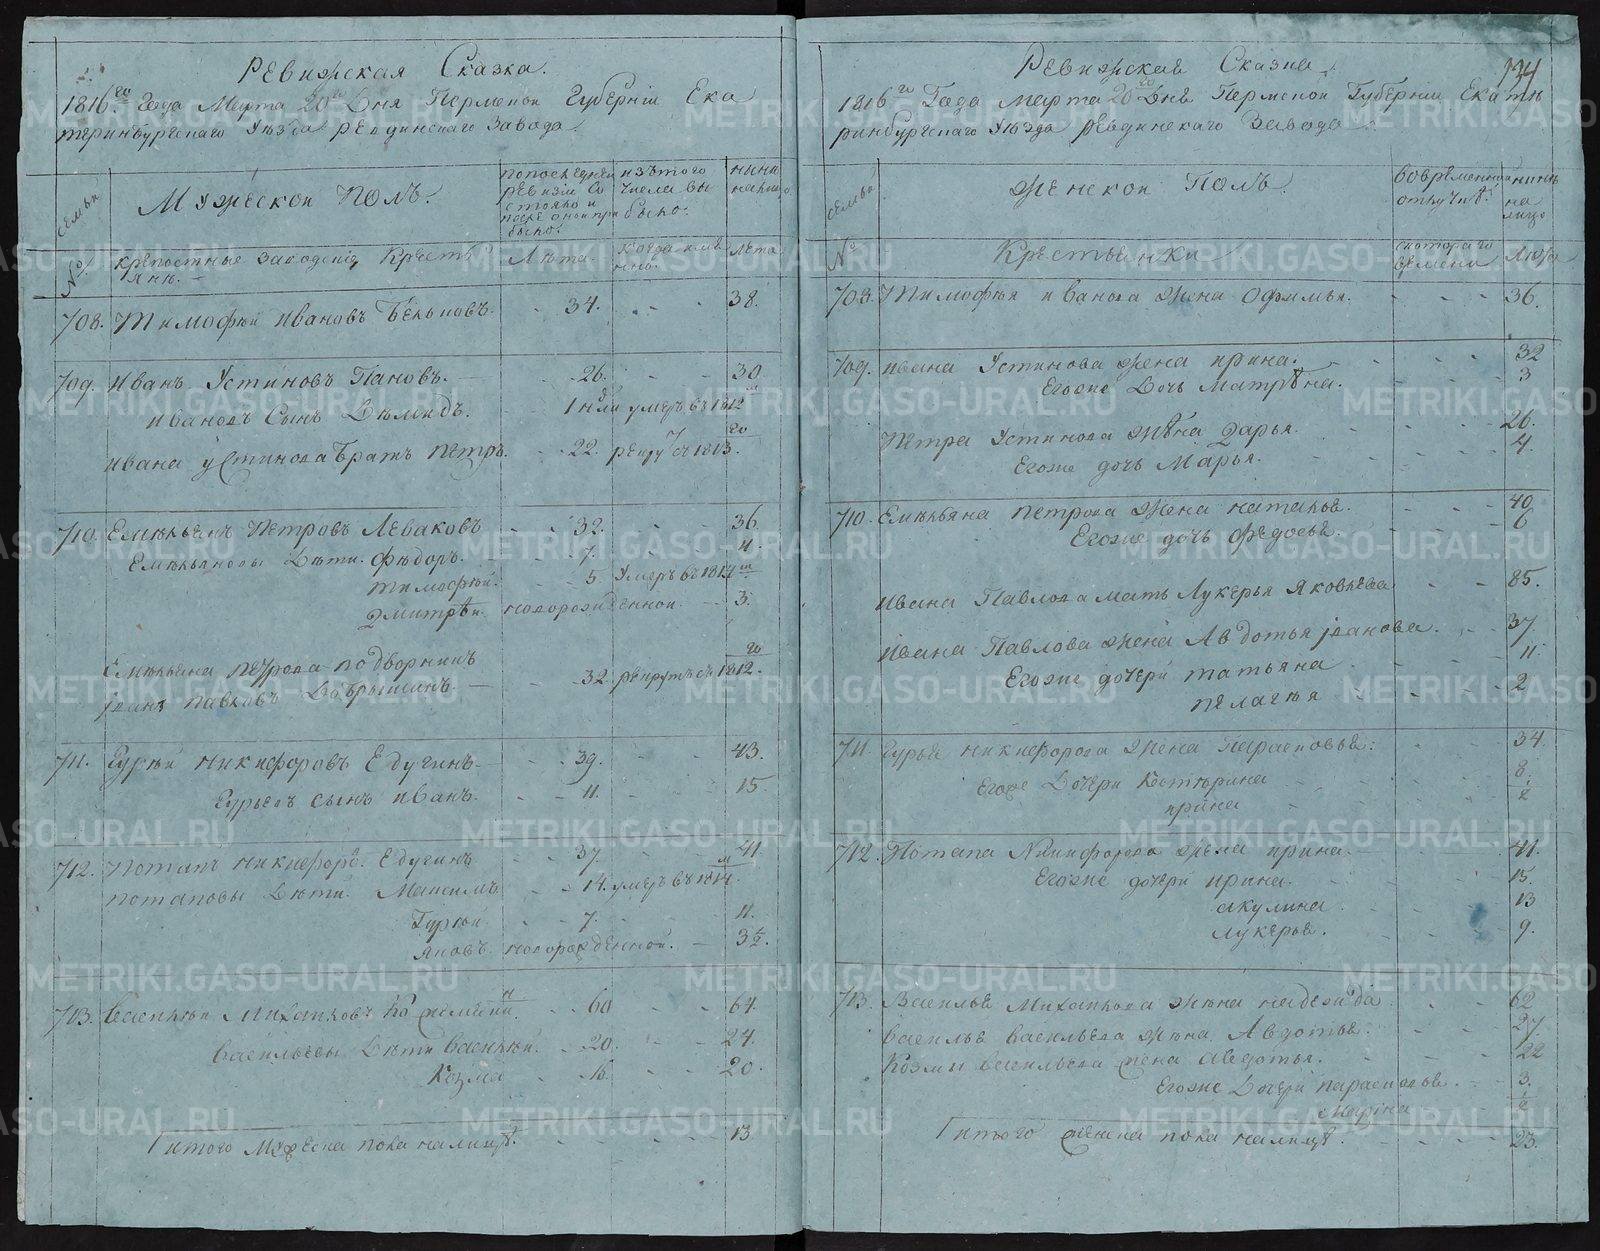 Ревижская Сказка.
1816.го Года Марта 20го Дня Пермской Губерніи Ека
теринбургскаго Уезда Ревдинскаго Завода
семьи
Мужескои Полъ.
попоследней ревизіи Состояло и после онои прибыло:
изътого числа выбыло:
ныне налицо
№
крепостные заводскіе Крестьяне.
Лета.
когда имянно.
Лета
708. Тимофеи Ивановъ 34. 38.
709. Иванъ Устиновъ Пановъ. 26. 30
Ивановъ Сынъ умеръ въ 1812м
Ивана Устинова Братъ Петръ. 22. рекру съ 1813.го
710. Емельянъ Петровъ Леваковъ 32. 36.
Емельяновы Дети. Фёдоръ. 7. 11.
Тимофеи. 5 Умеръ въ 1814м
Дмитреи. новорожденнои. 3.
Емельяна Петрова подворникъ
Иванъ Павловъ 32. рекрутъ съ 1812.го
711. Гурьи Никифоровъ Едугинъ 39. 43.
Гурьевъ сынъ Иванъ. 11. 15
712. Потапъ Никифоро. Едугинъ 37 41.
Потаповы Дети. Максимъ 14. умеръ въ 1814.м
Гурьи. 7. 11.
Яковъ. новорожденнои. 3½.
713. Василеи Михаиловъ 60 64.
Васильевы Дети Василеи. 20. 24.
Козма 16. 20.
Итого Мужеска пола налицѣ. 13
Ревижская Сказка.
134
1816го Года Марта 20го Дня Пермскои Губерніи Екате
ринбургскаго Уезда Ревдинскаго Завода
семьи
Женскои Полъ.
вовременнои отлучкѣ.
ныне на лицо
№
Крестьянки
скотораго времени
Лета
708. Тимофея Иванова Жена Офимья. 36.
709. Ивана Устинова Жена Ирина. 32
Егоже Дочь Матрена. 3
Петра Устинова Жена Дарья. 26.
Егоже дочь Марья. 4.
710. Емельяна Петрова Жена Наталья. 40.
Егоже дочь Федосья. 6
Ивана Павлова мать Лукерья Яковлева 85.
Ивана Павлова Жена Авдотья Іванова. 37
Егоже дочери Татьяна 11.
Пелагея 2
711. Гурья Никифорова Жена Парасковья: 34.
Егоже Дочери Кестерина 8.
Ирина ½
712. Потапа Никифорова Жена Ирина. 41.
Егоже дочери Ирина. 15.
Акулина. 13
Лукерья. 9.
713. Василья Михаилова Жена Надежда. 62
Василья Васильева Жена Авдотья. 27.
Козмы Васильева жена Авдотья. 22
Егоже Дочери Парасковья. 3.
Марина ½
Итого женска пола налицѣ. 23.
METRIKI.GASO-URAL.RU